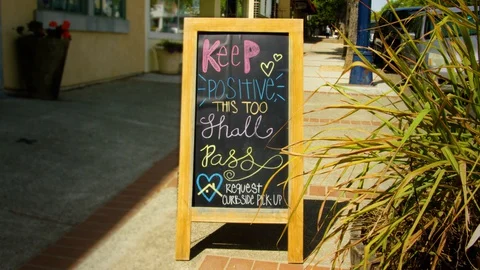 KeeP
POSITIVE
THIS TOO
Shall
Pass
REQUEST
CURBSIDE PICK-UP